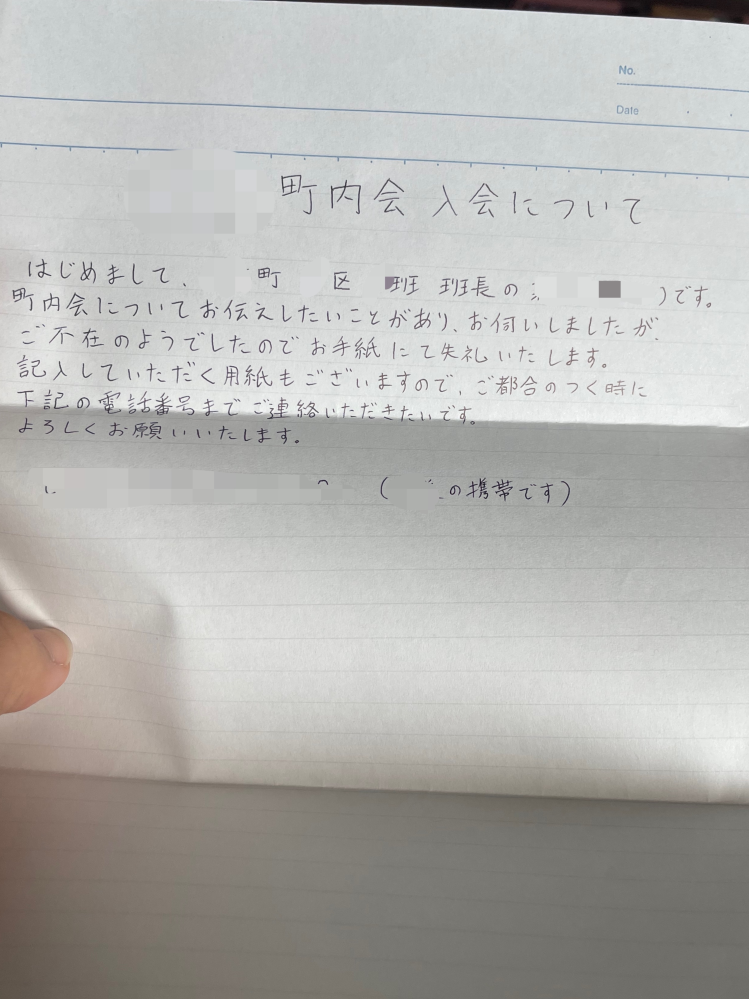 No.
Date
町内会 入会について
はじめまして、 町 区 班 班長の です。
町内会についてお伝えしたいことがあり、お伺いしましたが、
ご不在のようでしたのでお手紙にて失礼いたします。
記入していただく用紙もございますので、ご都合のつく時に
下記の電話番号までご連絡いただきたいです。
よろしくお願いいたします。
( の携帯です)